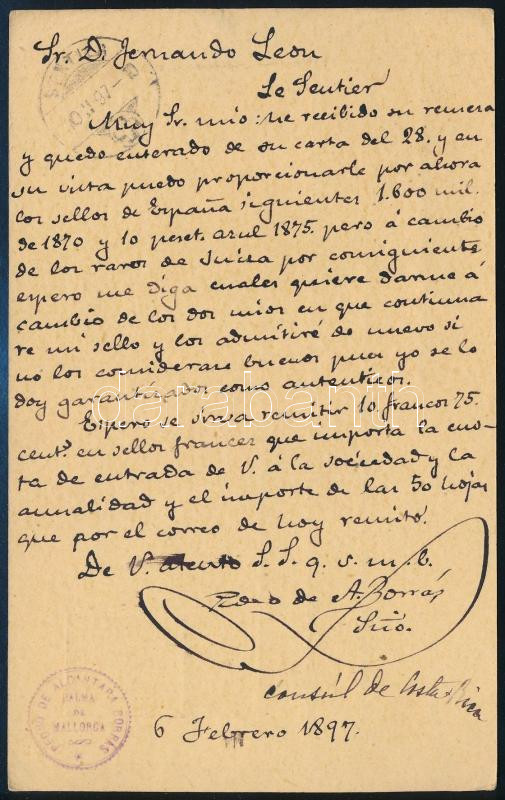 Sr. D. Fernando Leon
Le Sentier
Muy Sr. mio: he recibido su remesa
y quedo enterado de su carta del 28. y en
su vista puedo proporcionarle por ahora
los sellos de España siguientes 1.600 mil.
de 1870 y 10 peset. azul 1875. pero á cambio
de los raros de Suiza por consiguiente
espero me diga cuales quiere darme á
cambio de los dos mios en que continua
re mi sello y los admitiré de nuevo si
nó los considerase buenos pues yo se lo
doy garantizados como autenticos.
Espero se sirva remitir 10 francos 75.
cent.s en sellos frances que importa la cuo-
ta de entrada de V. á la sociedad y la
anualidad y el importe de las 50 hojas
que por el correo de hoy remito.
De V. atento S. S. q. s. m. b.
Pedro de A. Borrás
consúl de Costa Rica
6 Febrero 1897.
PEDRO DE ALCANTARA BORRÁS
PALMA
DE
MALLORCA
SENTIER
darabanth